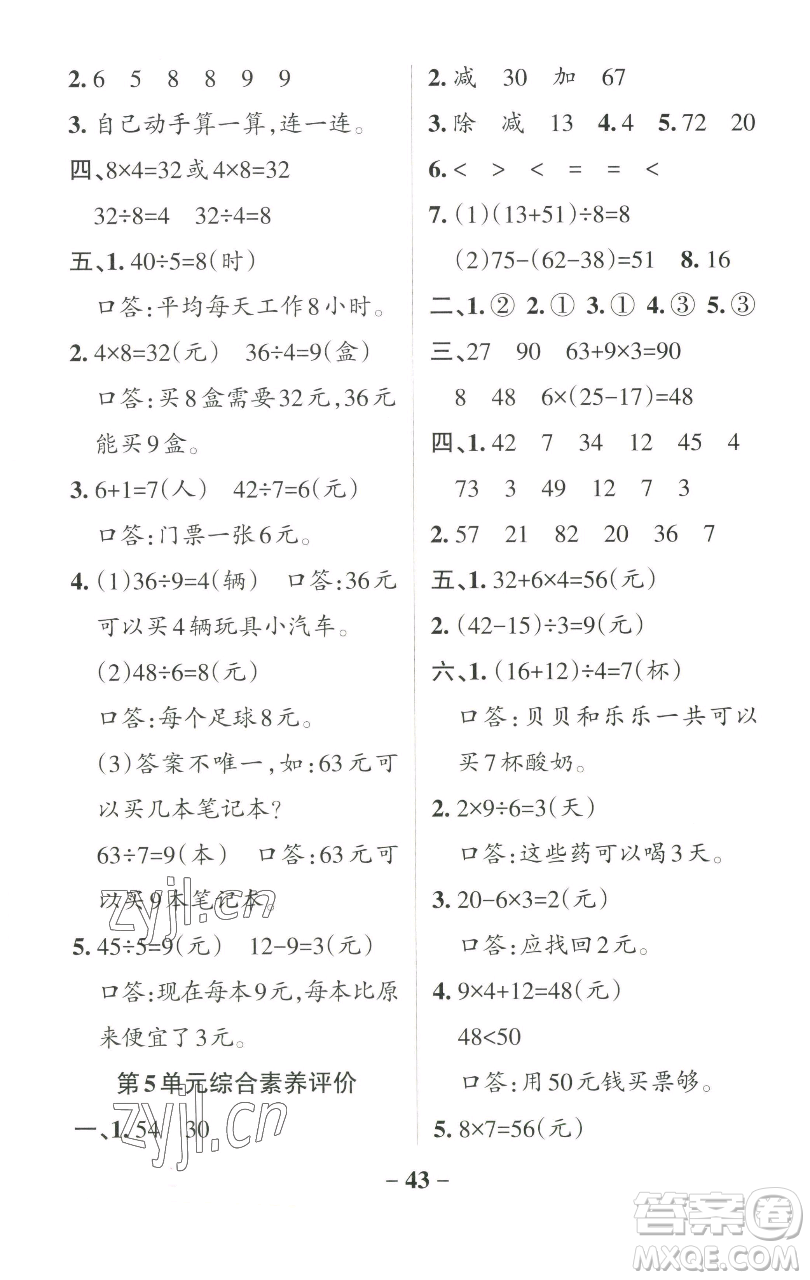 2. 6 5 8 8 9 9
3. 自己动手算一算,连一连。
四、8×4=32或4×8=32
32÷8=4 32÷4=8
五、1. 40÷5=8(时)
口答:平均每天工作8小时。
2. 4×8=32(元) 36÷4=9(盒)
口答:买8盒需要32元,36元
能买9盒。
3. 6+1=7(人) 42÷7=6(元)
口答:门票一张6元。
4. (1)36÷9=4(辆) 口答:36元
可以买4辆玩具小汽车。
(2)48÷6=8(元)
口答:每个足球8元。
(3)答案不唯一,如:63元可
以买几本笔记本?
63÷7=9(本) 口答:63元可
以买9本笔记本。
5. 45÷5=9(元) 12-9=3(元)
口答:现在每本9元,每本比原
来便宜了3元。
第5单元综合素养评价
一、1. 54 30
2. 减 30 加 67
3. 除 减 13 4. 4 5. 72 20
6. < > < = = <
7. (1)(13+51)÷8=8
(2)75-(62-38)=51 8. 16
二、1. ② 2. ① 3. ① 4. ③ 5. ③
三、27 90 63+9×3=90
8 48 6×(25-17)=48
四、1. 42 7 34 12 45 4
73 3 49 12 7 3
2. 57 21 82 20 36 7
五、1. 32+6×4=56(元)
2. (42-15)÷3=9(元)
六、1. (16+12)÷4=7(杯)
口答:贝贝和乐乐一共可以
买7杯酸奶。
2. 2×9÷6=3(天)
口答:这些药可以喝3天。
3. 20-6×3=2(元)
口答:应找回2元。
4. 9×4+12=48(元)
48<50
口答:用50元钱买票够。
5. 8×7=56(元)
- 43 -
zyjl.cn
zyjl.cn
答案卷
MXQE.COM